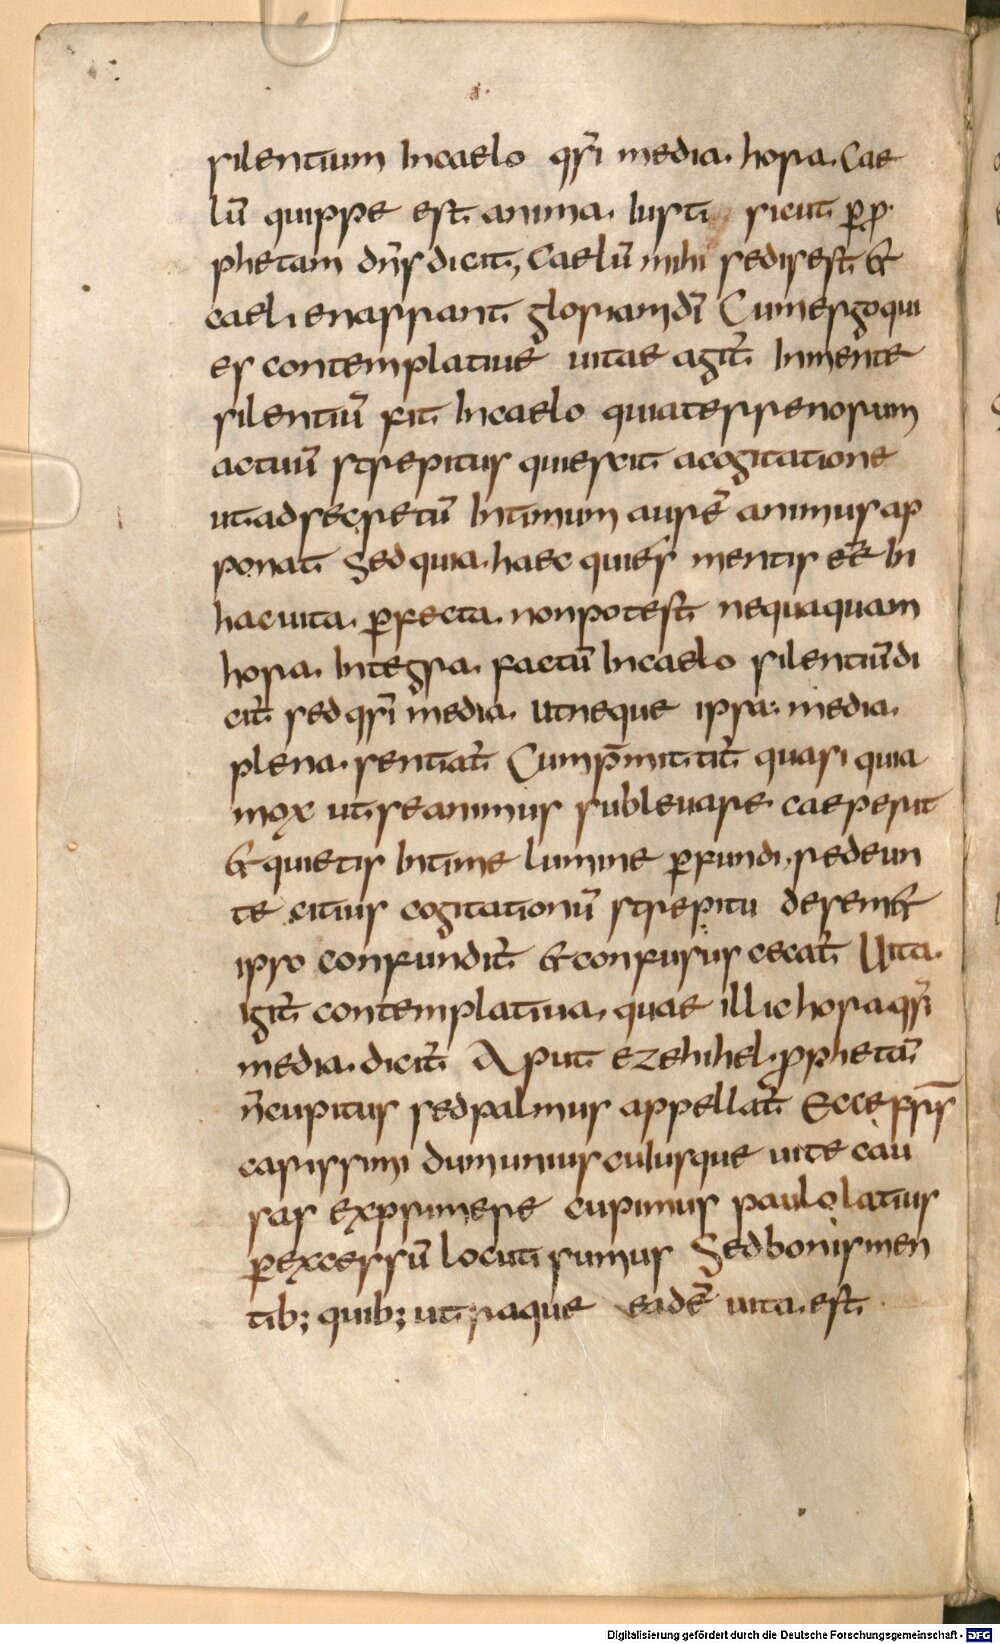 silentium Incaelo qs̄i media. hora. Cae
lū quippe est. anima. Iusti sicut ꝑꝓ.
phetam dn̄s dicit, Caelū mihi sedis est &
caeli enarrant gloriam dī Cum ergo qui
es contemplativę vitae agit᷑ Inmente
silentiū fit Incaelo quia terrenorum
actuū strepitus quiescit acogitatione
ut ad secretū Intimum aurē animus ap
ponat Sed quia. haec quies mentis ēē In
hac vita. ꝑfecta. non potest nequaquam
hora. Integra. factū Incaelo silentiū di
cit᷑ sed qs̄i media. Utneque ipsa. media.
plena. sentiat᷑ Cum p̄mittit᷑ quasi quia
mox ut se animus sublevare caeperit
& quietis Intime lumine ꝑfundi, redeun
te citius cogitationū strepitu desem&
ipso confundit᷑ & confusus cecat᷑ Uita.
igit᷑ contemplativa. quae illic hora qs̄i
media. dicit᷑ Aput ezehihel. ꝓphetā
n̄ cupitus sed palmus appellat᷑ Ecce frs̄
carissimi dum unius cuIusque vite cau
sas exprimere cupimus paulo latius
ꝑexcessū locuti sumus Sed bonis men
tib; quib; utraque eadē vita. est